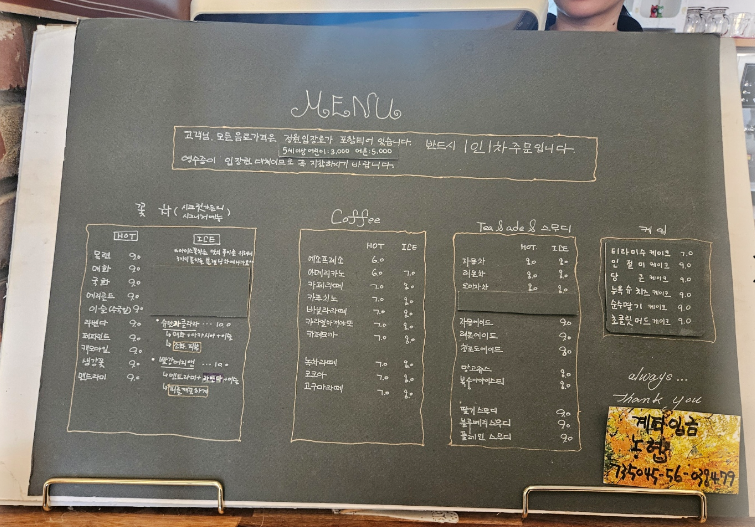 MENU
고객님, 모든음료가격은 정원입장료가 포함되어 있습니다. 반드시 1인 1차 주문입니다.
5세이상 어린이:3,000 어른:5,000
영수증이 입장권 대체이므로 꼭 지참하시기 바랍니다.
꽃 차
HOT ICE
목련 9.0
매화 9.0
국화 9.0
메리골드 9.0
이슬(수국)차 9.0
라벤다 9.0
페퍼민트 9.0
캐모마일 9.0
생강꽃 9.0
맨드라미 9.0
10.0
10.0
Coffee
HOT ICE
에스프레소 6.0
아메리카노 6.0 7.0
카페라떼 7.0 8.0
카푸치노 7.0 8.0
바닐라라떼 7.0 8.0
카라멜마끼아또 7.0 8.0
카페모카 7.0 8.0
녹차라떼 7.0 8.0
코코아 7.0 8.0
고구마라떼 7.0 8.0
Tea & ade & 스무디
HOT ICE
자몽차 8.0 8.0
레몬차 8.0 8.0
8.0 8.0
자몽에이드 9.0
레몬에이드 9.0
청포도에이드 9.0
망고쥬스 8.0
복숭아아이스티 8.0
딸기 스무디 9.0
블루베리 스무디 9.0
플레인 스무디 9.0
케 익
티라미슈 케이크 7.0
인 절 미 케이크 9.0
당 근 케이크 9.0
케이크 9.0
순수딸기 케이크 9.0
초콜릿 케이크 9.0
always...
Thank you
계좌입금
농협
735045-56-039479